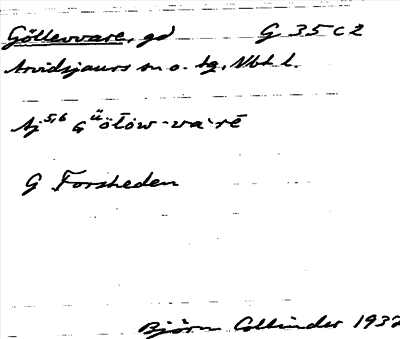 Göllevvare, gd G 35 c 2
Arvidsjaurs sn o. tg, Nbt l.
Aj 5,6 Gᵘ̈ölōw-va`rē
G Forsheden
Björn Collinder 1932